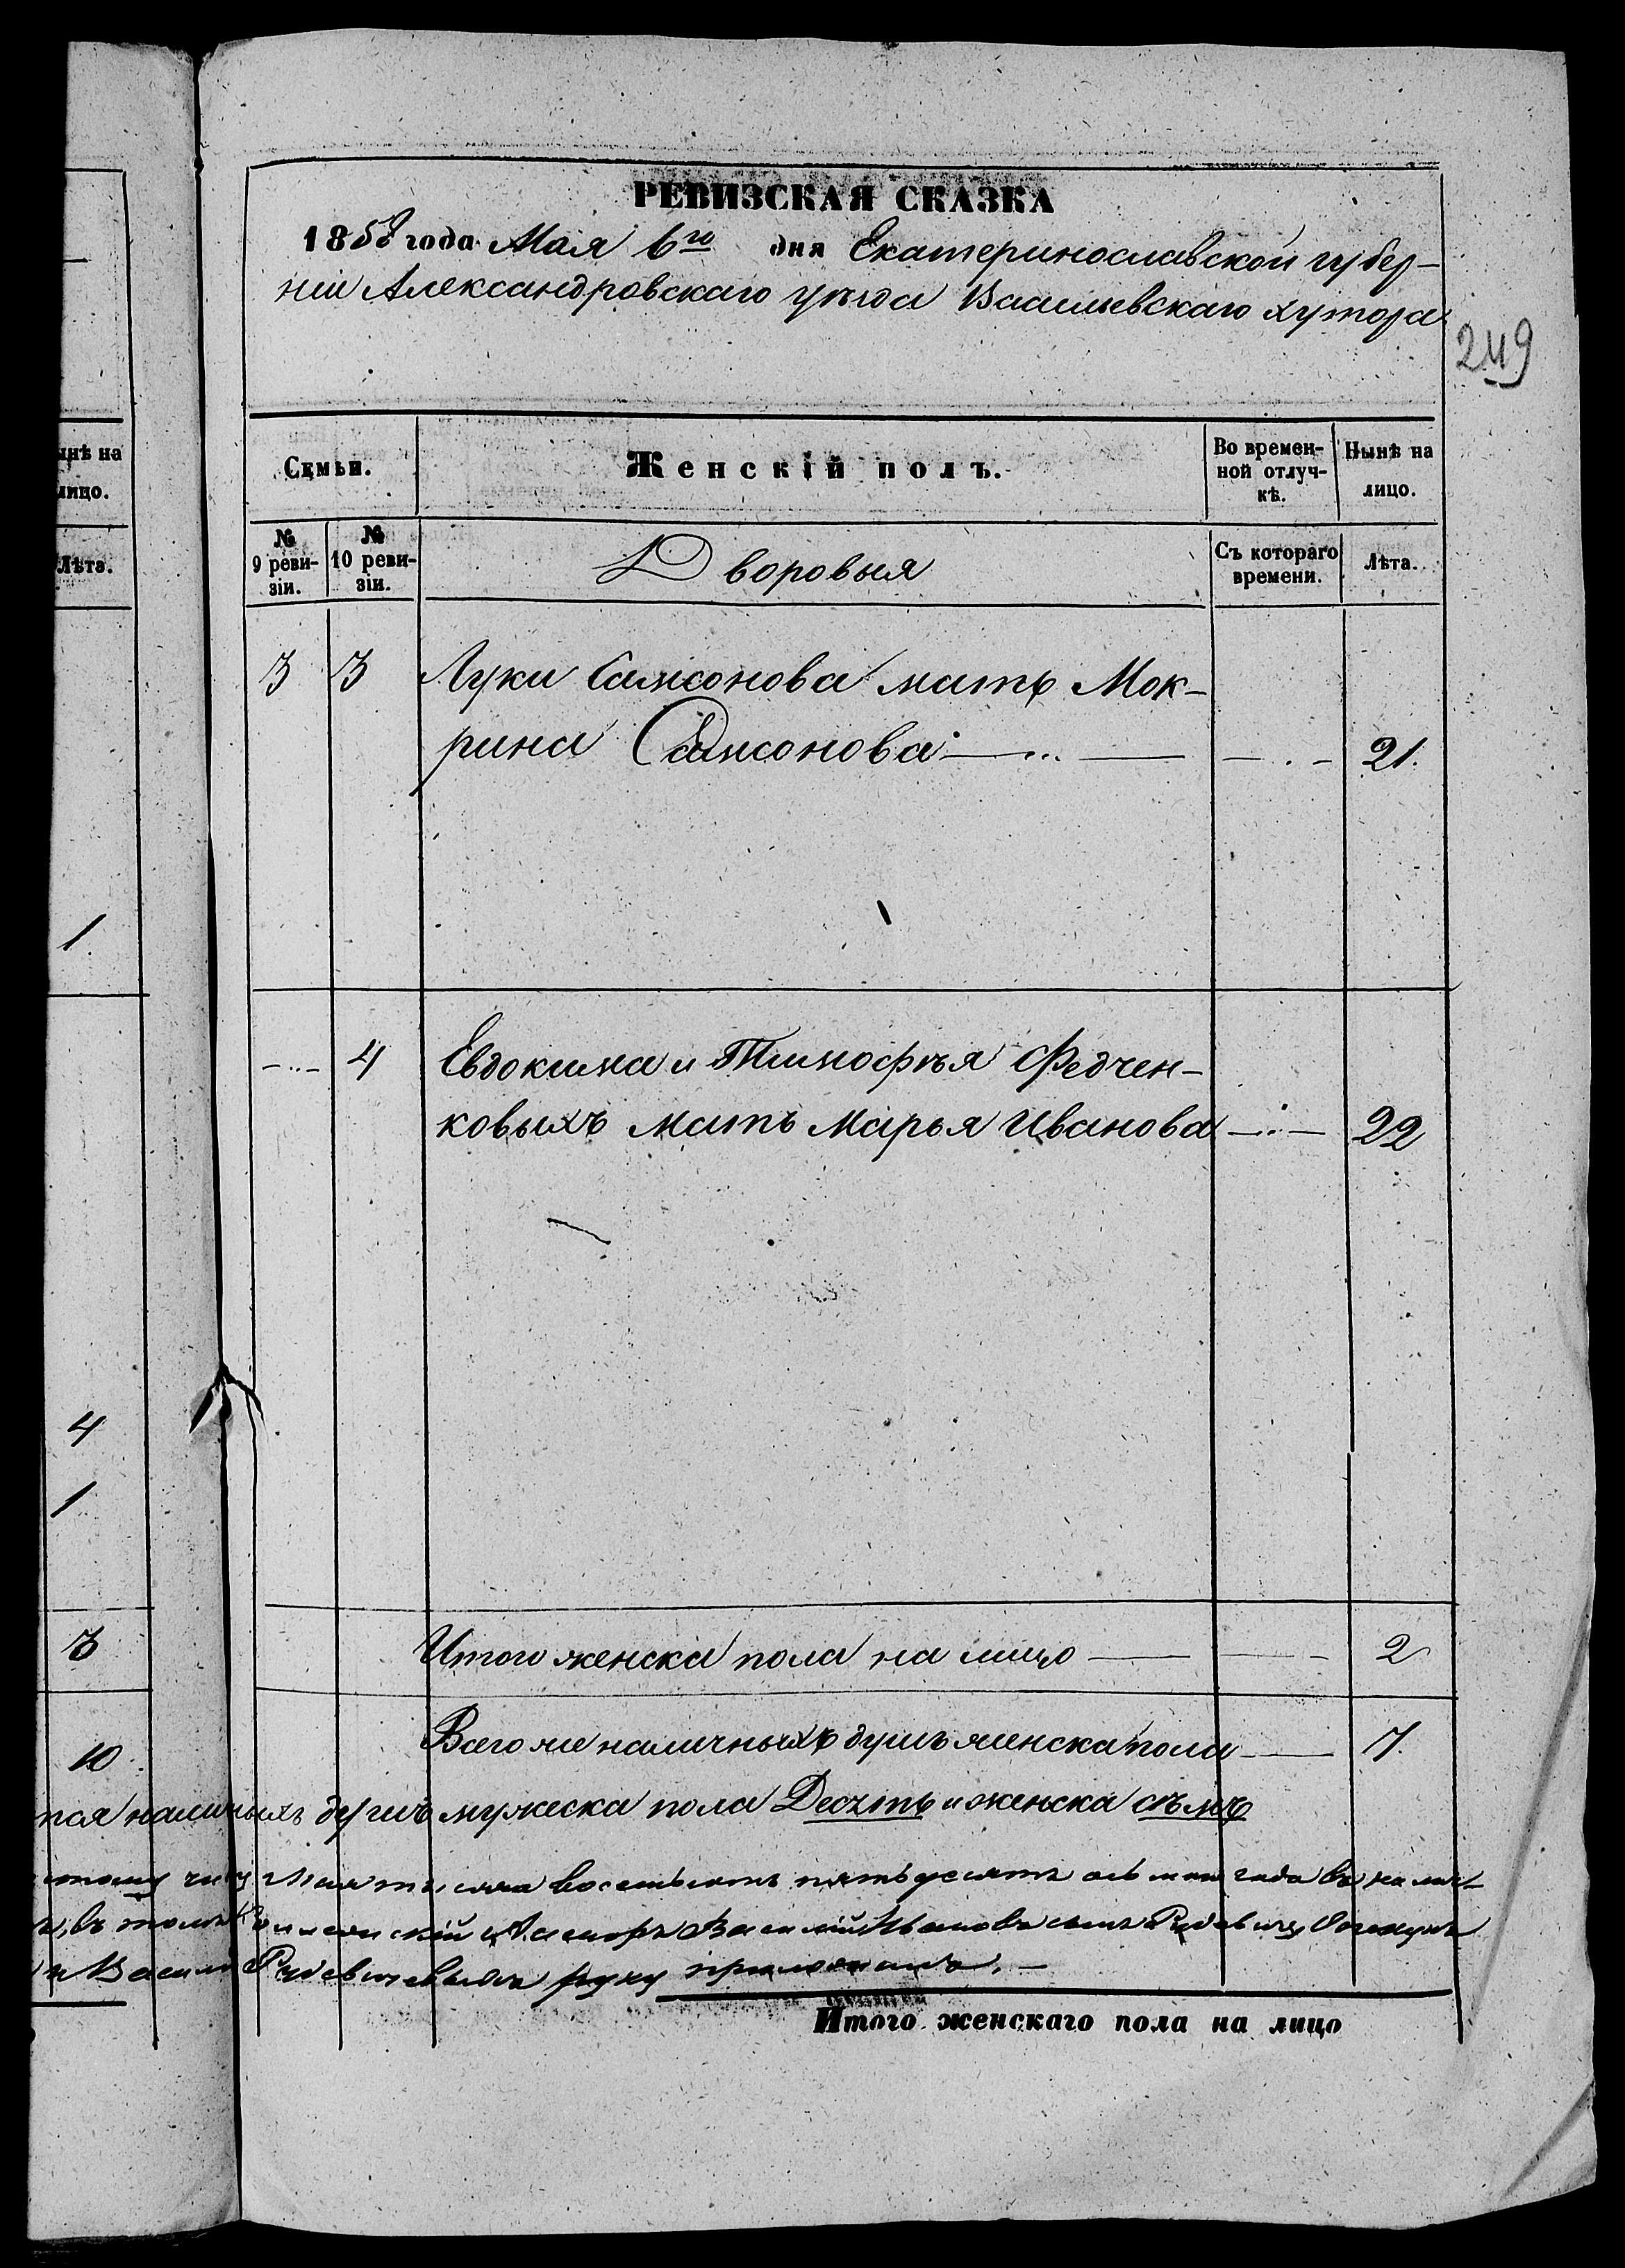 РЕВИЗСКАЯ СКАЗКА
1858 года Мая 6го дня Екатеринославской губер-
ніи Александровскаго уѣзда Васильевскаго хутора
249
ынѣ на
лицо.
Лѣта.
Семьи.
Женскій полъ.
Во времен-
ной отлуч-
кѣ.
Нынѣ на
лицо.
№
9 реви-
зіи.
№
10 реви-
зіи.
Дворовыя
Съ котораго
времени.
Лѣта.
3 3 Луки Самсонова мать Мок-
рина Самсонова 21.
1
4 Евдокима и Тимофѣя Федчен-
ковыхъ мать Марья Иванова 22
4
1
3
Итого женска пола на лицо 2
10.
Всего же наличныхъ душъ женска пола 7.
тся наличныхъ душъ мужеска пола Десять и женска сѣмь
тысяча восемьсотъ пятьдесятъ осьмаго года
въ томъ Коллежскій Ассесоръ Василій Ивановъ сынъ
и Васил руку приложилъ.
Итого женскаго пола на лицо